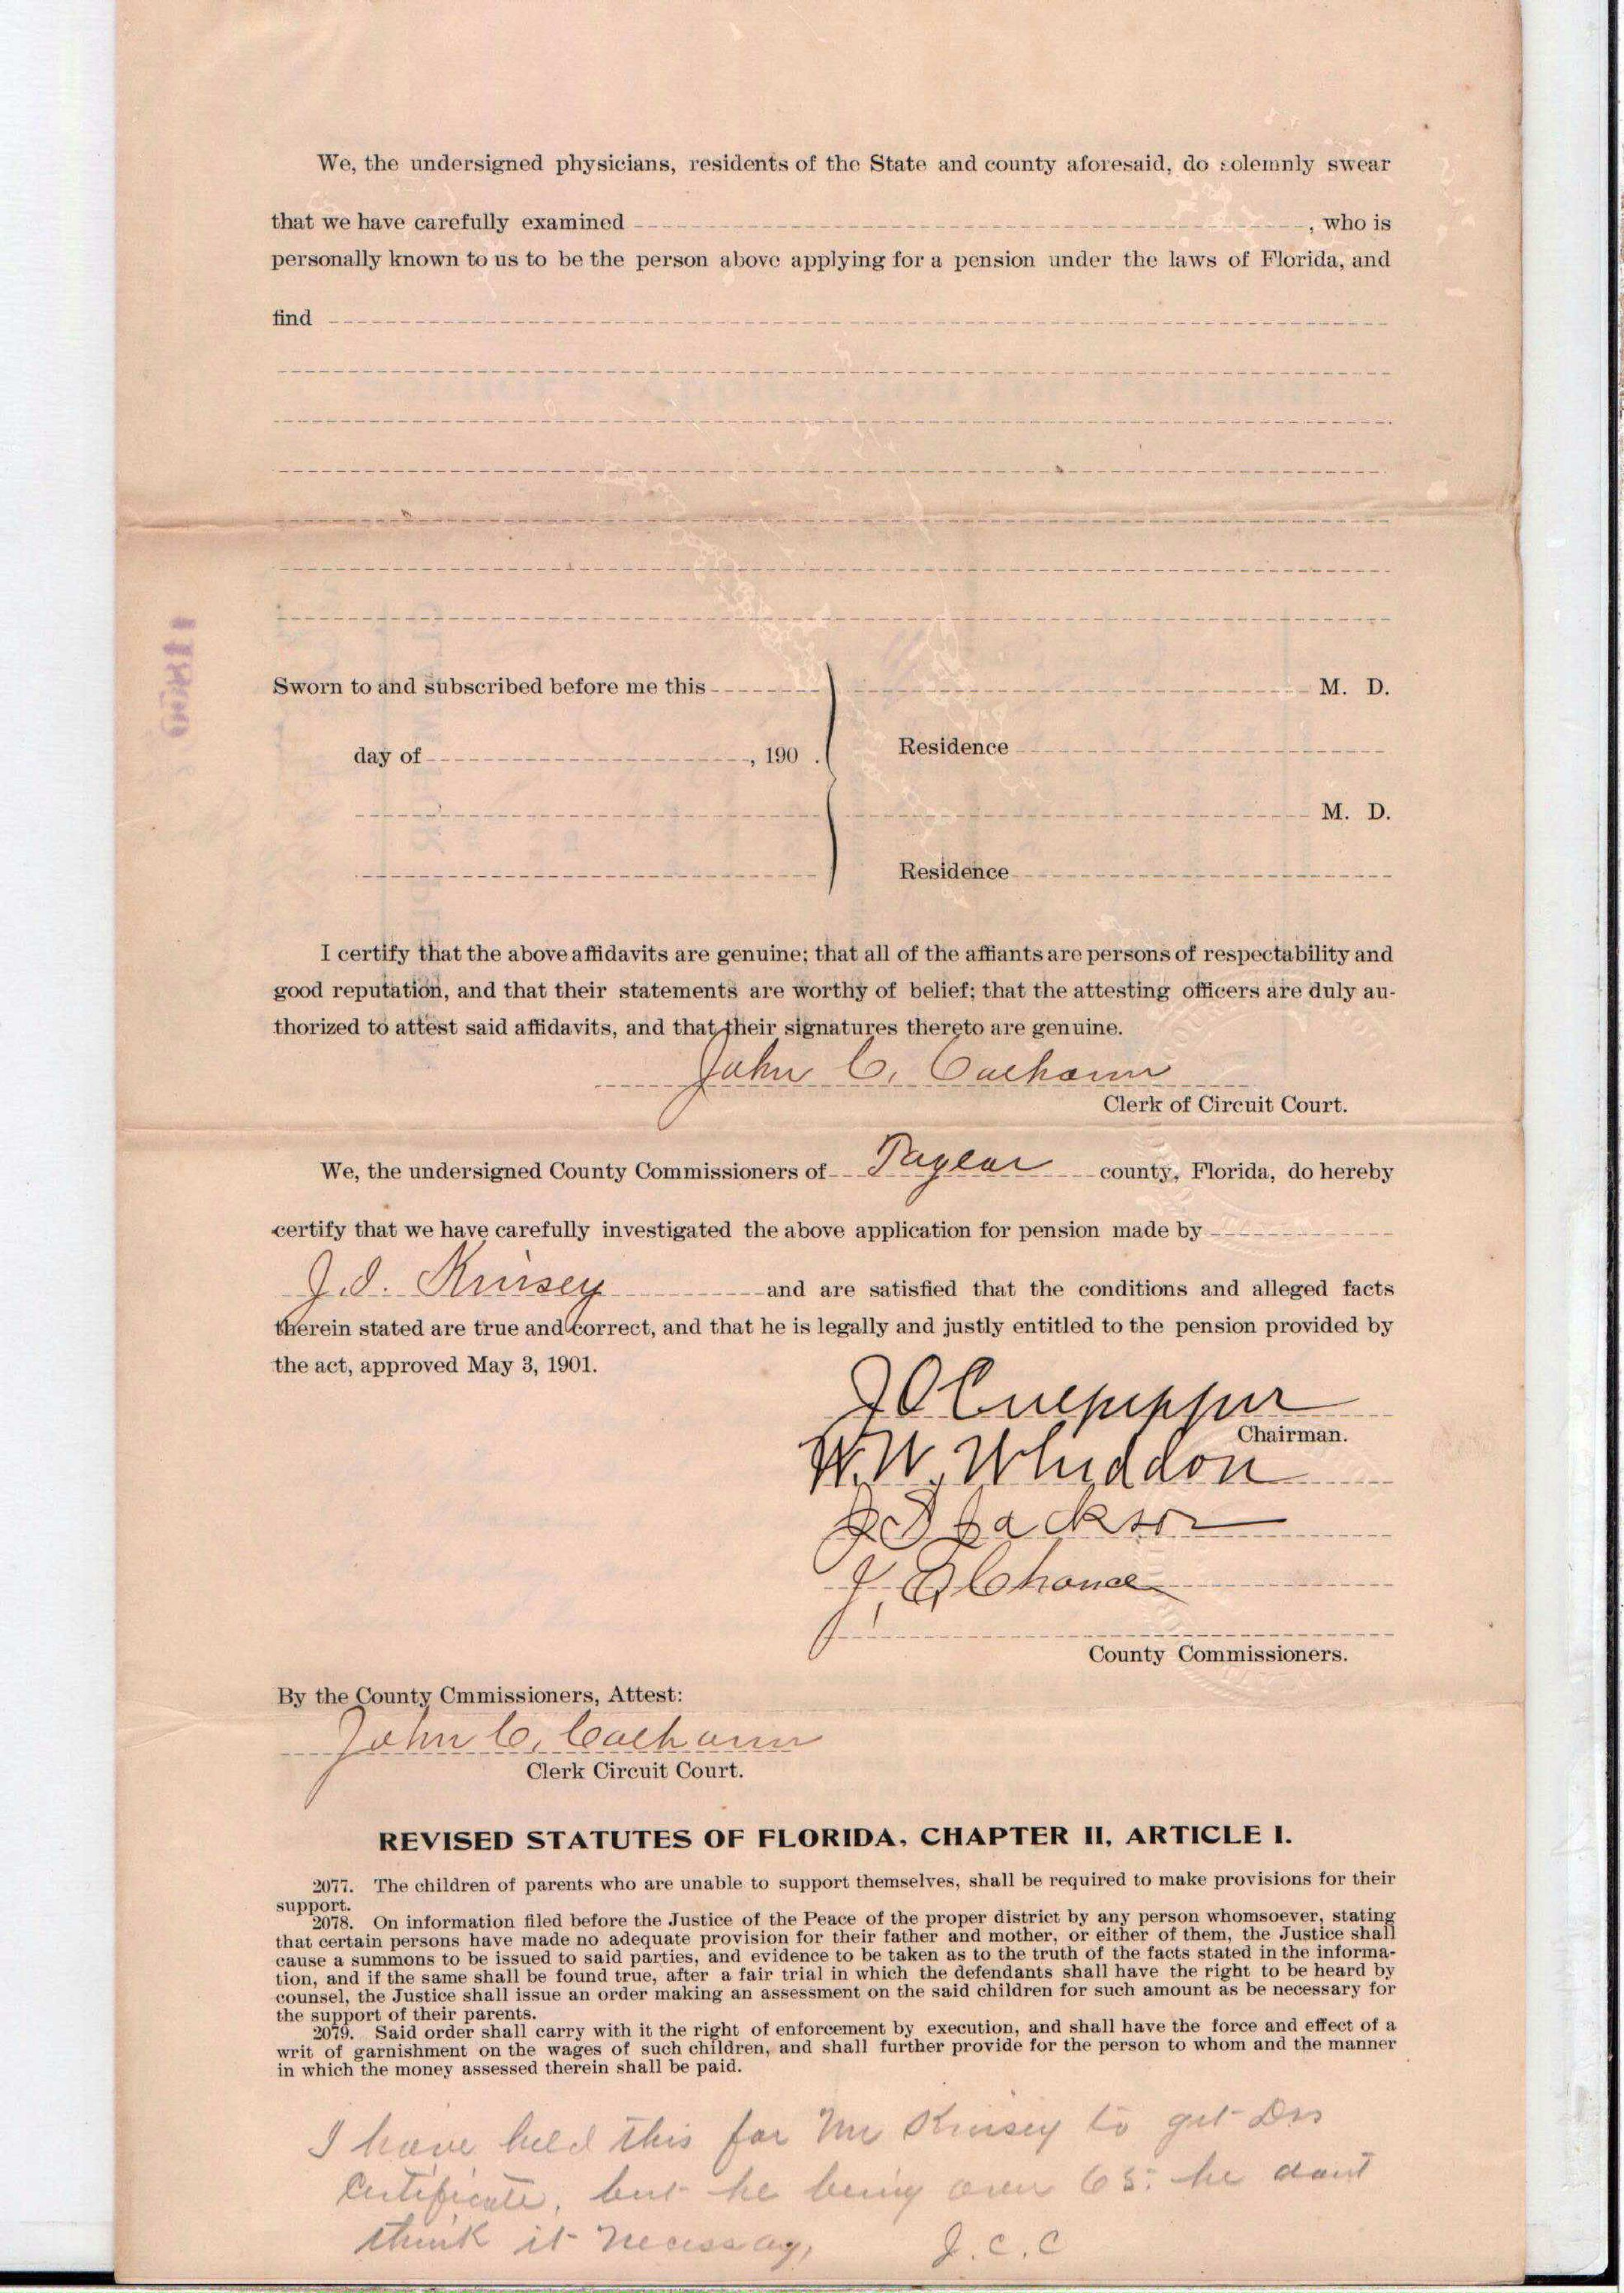 We, the undersigned physicians, residents of the State and county aforesaid, do solemnly swear
that we have carefully examined , who is
personally known to us to be the person above applying for a pension under the laws of Florida, and
find
Sworn to and subscribed before me this M. D.
day of , 190 . Residence
M. D.
Residence
I certify that the above affidavits are genuine; that all of the affiants are persons of respectability and
good reputation, and that their statements are worthy of belief; that the attesting officers are duly au-
thorized to attest said affidavits, and that their signatures thereto are genuine.
John C. Calhoun
Clerk of Circuit Court.
We, the undersigned County Commissioners of Taylor county, Florida, do hereby
certify that we have carefully investigated the above application for pension made by
J.J. Kinsey and are satisfied that the conditions and alleged facts
therein stated are true and correct, and that he is legally and justly entitled to the pension provided by
the act, approved May 3, 1901.
J O Culpepper
Chairman.
W. W. Whiddon
Jackson
Chance
County Commissioners.
By the County Cmmissioners, Attest:
John C. Calhoun
Clerk Circuit Court.
REVISED STATUTES OF FLORIDA, CHAPTER II, ARTICLE I.
2077. The children of parents who are unable to support themselves, shall be required to make provisions for their
support.
2078. On information filed before the Justice of the Peace of the proper district by any person whomsoever, stating
that certain persons have made no adequate provision for their father and mother, or either of them, the Justice shall
cause a summons to be issued to said parties, and evidence to be taken as to the truth of the facts stated in the informa-
tion, and if the same shall be found true, after a fair trial in which the defendants shall have the right to be heard by
counsel, the Justice shall issue an order making an assessment on the said children for such amount as be necessary for
the support of their parents.
2079. Said order shall carry with it the right of enforcement by execution, and shall have the force and effect of a
writ of garnishment on the wages of such children, and shall further provide for the person to whom and the manner
in which the money assessed therein shall be paid.
I have held this for Mr Kinsey to get Drs
Certificate, but he being over 65. he dont
think it necessay, J. C. C